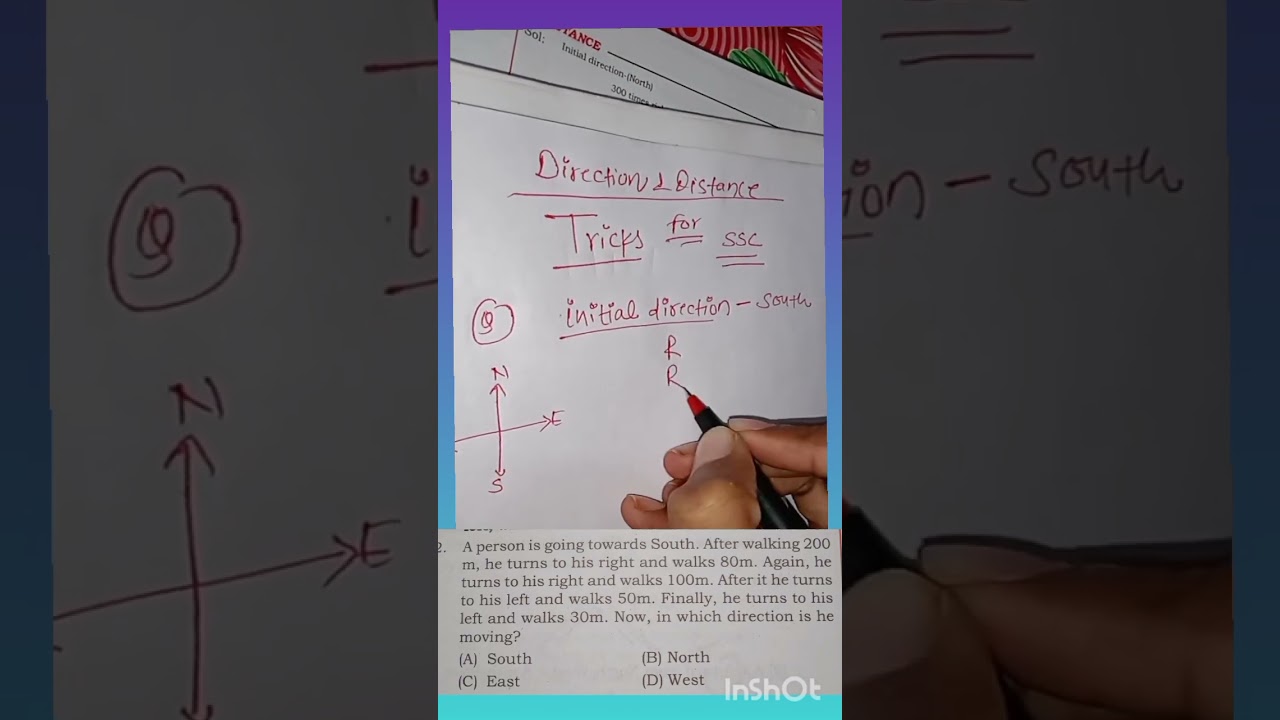 TANCE
Sol;
Initial direction-(North)
300 times
Direction & Distance
Tricks for SSC
Q initial direction - South
R
N
R
E
S
2. A person is going towards South. After walking 200
m, he turns to his right and walks 80m. Again, he
turns to his right and walks 100m. After it he turns
to his left and walks 50m. Finally, he turns to his
left and walks 30m. Now, in which direction is he
moving?
(A) South (B) North
(C) East (D) West
InShOt
Q
i
ion - South
N
E